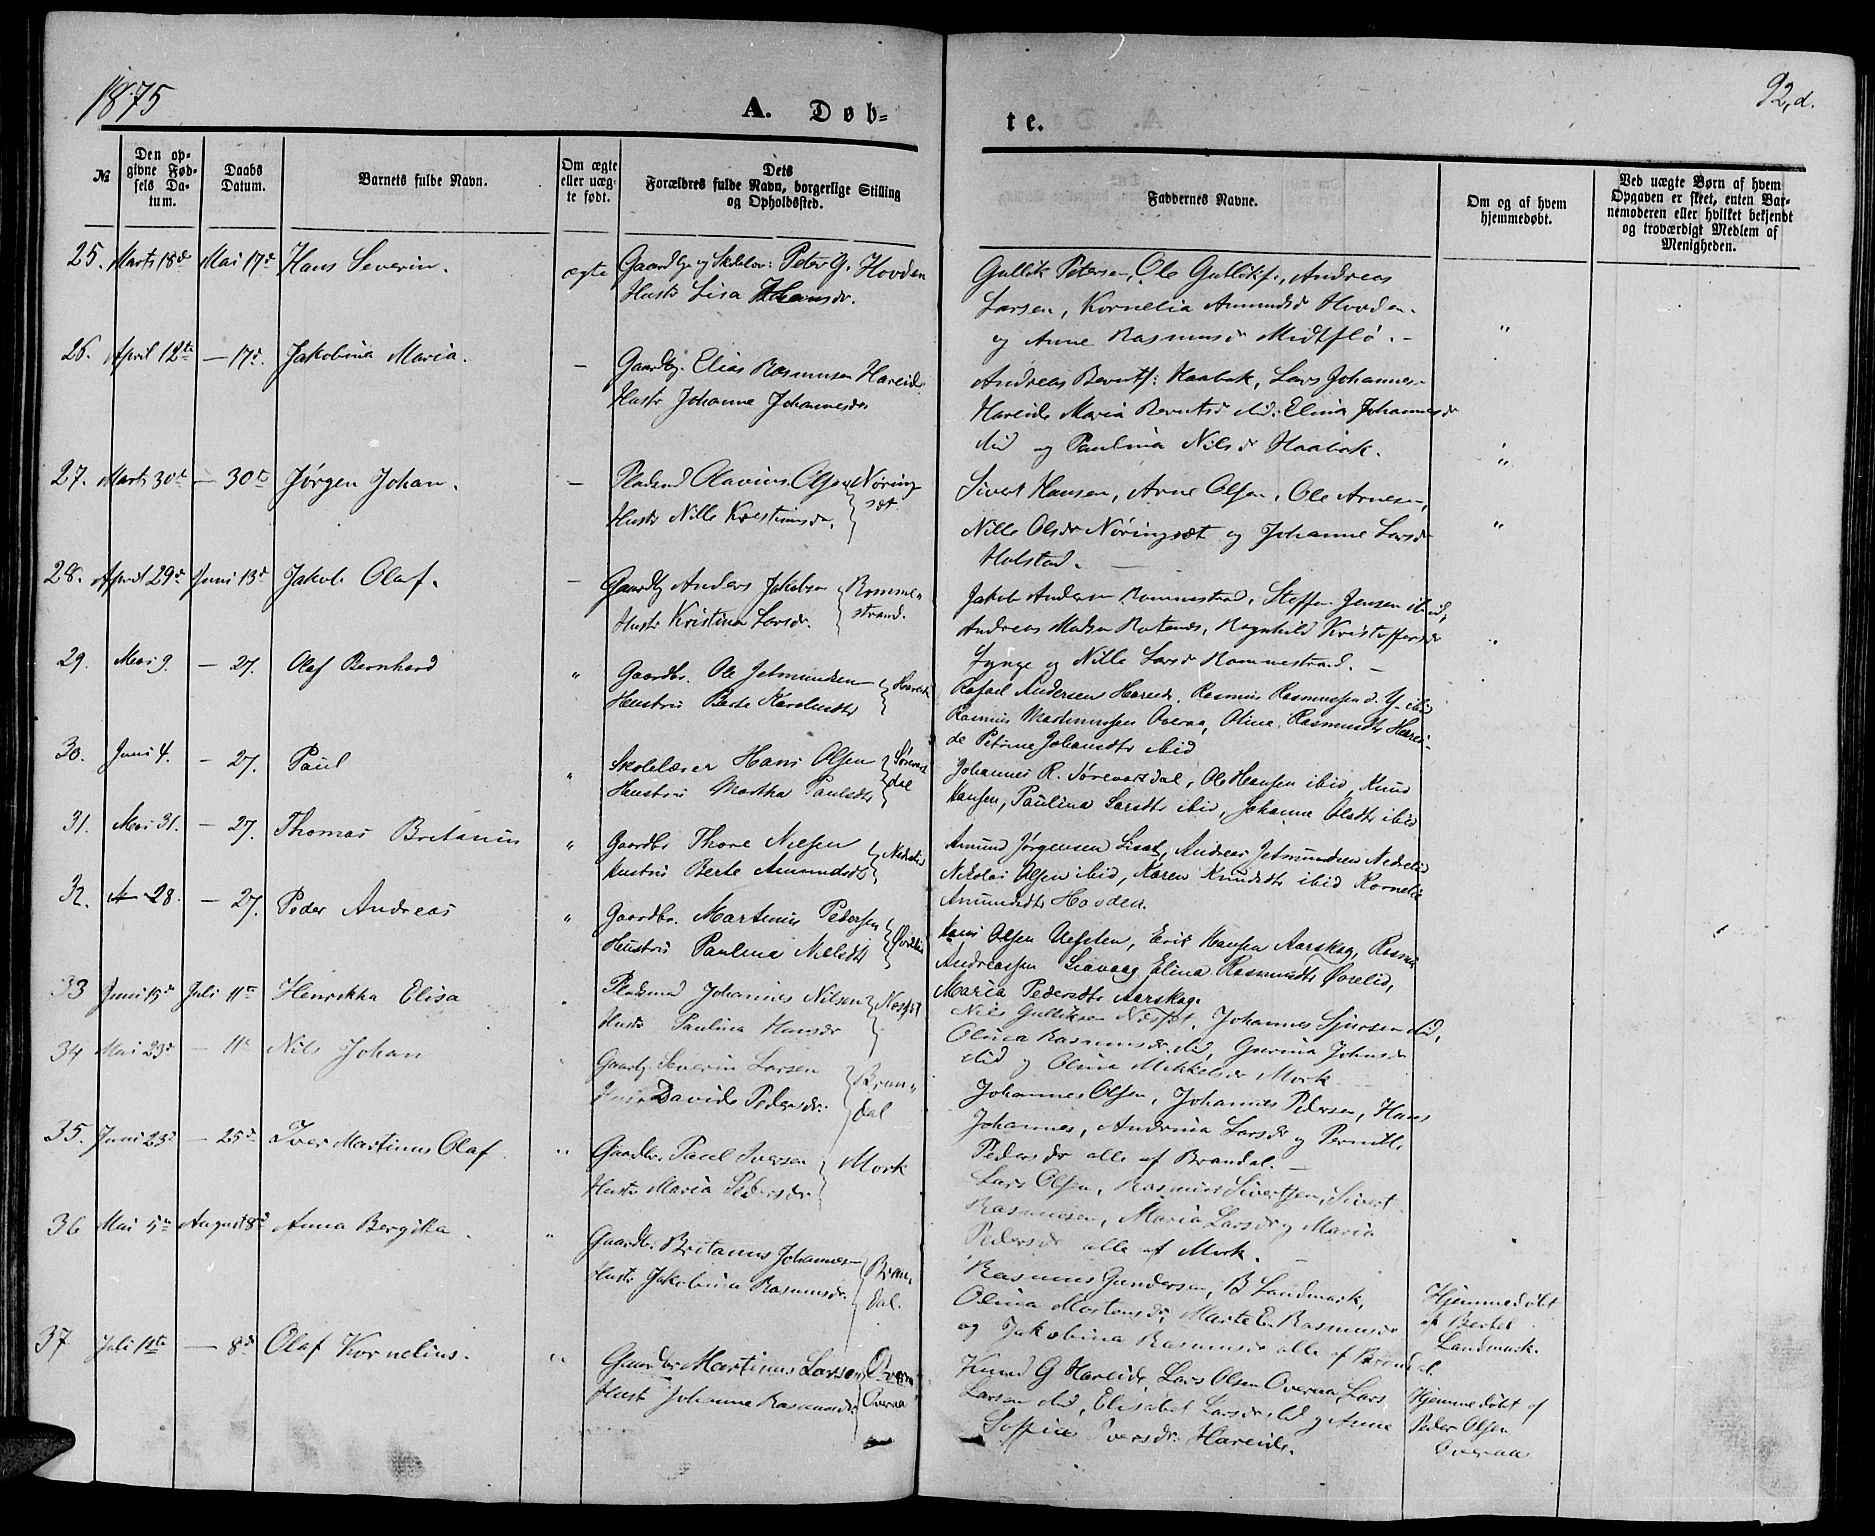 1875
92,d.
A. Døb-
te.
№
Den op-
givne Fød-
sels Da-
tum.
Daabs
Datum.
Barnets fulde Navn.
Om ægte
eller uæg-
te født.
Dets
Forældres fulde Navn, borgerlige Stilling
og Opholdssted.
Faddernes Navne.
Om og af hvem
hjemmedøbt.
Ved uægte Børn af hvem
Opgaven er skeet, enten Bar-
nemoderen eller hvilket bekjendt
og troværdigt Medlem af
Menigheden.
25. Marts 18de Mai 17de Hans Severin. ægte Gaardbr. og Skolelær: Peter G. Hovden
Hustr Lisa
Gullik Petersen, Ole Gulliks., Andreas
Larsen, Kornelia Amundsd Hovden
og Anne Rasmusdr Midtflø. -
"
26. April 12te — 17d. Jakobina Maria. — Gaardbr. Elias Rasmusen Hareide
Hustr Johanne Johannesdr
Andreas Berntss: Haabak, Lars Johannes-
Hareide Maria Berntsd ibid: Elina Johannesdr
ibid og Paulina Nilsdr Haabak.
"
27. Marts 30d — 30te Jørgen Johan. — Pladsmd Olavius Olsen Nøring-
sæt.
Hustr Nille Kristinusdr.
Sivert Hansen, Arne Olsen, Ole Arnesen,
Nille Olsdr Nøringsæt og Johanne Larsdr
Holstad.
"
28. April 29d Juni 13d Jakob Olaf. — Gaardbr Anders Jakobsen Romme-
strand.
Hustr Kristina Larsdr.
Jakob Andersen Rommestrand, Steffen Jensen ibid,
Andreas Madsen Rotenes, Ragnhild Kristoffersdr
Lynge og Nille Larsdr Rommestrand. —
"
29. Mai 9. — 27. Olaf Bernhard " Gaardbr. Ole Jetmundsen Hareide
Hustru Berte Karolusdtr
Rafael Andersen Hareide. Rasmus Rasmussen d. Y. ibid
Rasmus Martinussen Overaa, Olina Rasmusdtr Harei-
de Petrine Johansdtr ibid
30. Juni 4. — 27. Paul " Skolelærer Hans Olsen
dal
Hustru Martha Paulsdtr
Johannes R. Sørevartsdal, Ole Hansen ibid, Knud
Hansen, Paulina Larsdtr ibid, Johanne Olsdtr ibid
31. Mai 31. — 27. Thomas Britanus " Gaardbr Thore Nielsen Nedrelid
Hustru Berte Amundsdtr
Amund Jørgensen Liset, Andreas Jetmundsen Nedrelid
Nikolai Olsen ibid, Karen Knudsdtr ibid Kornelia
Amundsdtr Hovden.
32. 28. — 27. Peder Andreas " Gaardbr. Martinus Pedersen Øvrelid
Hustru Paulina Nilsdtr
Hans Olsen Uefsten, Erik Hansen Aarskog, Rasmus
Andreassen Liavaag, Elina Rasmusdtr Øvrelid,
Maria Pedersdtr Aarskog.
33 Juni 15d Juli 11te Henrikka Elisa " Pladsmd Johannes Nilsen
Hustr Paulina Hansdr
Nils Gulliksen Johannes Sjursen ibid,
Olina Rasmusdr ibid, Gurina Johnsdr
ibid og Olina Mikkelsdr Mork
34 Mai 23d — 11te Nils Johan " Gaardbr. Severin Larsen Bran-
dal
Hustr Davida Pedersdr.
Johannes Olsen, Johannes Pedersen, Hans
Johannes, Andrina Larsdr og Pernille
Pedersdr alle af Brandal. —
35. Juni 23d — 25d Iver Martinus Olaf " Gaardbr. Paul Iversen Mork
Hustr Maria Pedersdr
Lars Olsen, Rasmus Sivertsen, Sivert
Rasmusen, Maria Larsdr og Maria
Pedersdr alle af Mork. —
36 Mai 5te August 8d Anna Bergitta. " Gaardbr. Britanus Johannesen Bran-
dal.
Hustr Jakobina Rasmusdr.
Rasmus Gundersen, B Landmark,
Olina Mortensdr, Marte E. Rasmusdr
og Jakobina Rasmusdr alle af Brandal.
Hjemmedøbt
af Bertel
Landmark.
37 Juli 11te — 8d Olaf Kornelius. " Gaardbr Martinus Larsen Overaa
Hustr Johanne Rasmusdr Overaa
Knud G Hareide, Lars Olsen Overaa, Lars
Larsen ibid, Elisabet Larsdr ibid og Anne
Soffie Iversdr. Hareide.
Hjemmedøbt af
Peder Olsen
Overaa